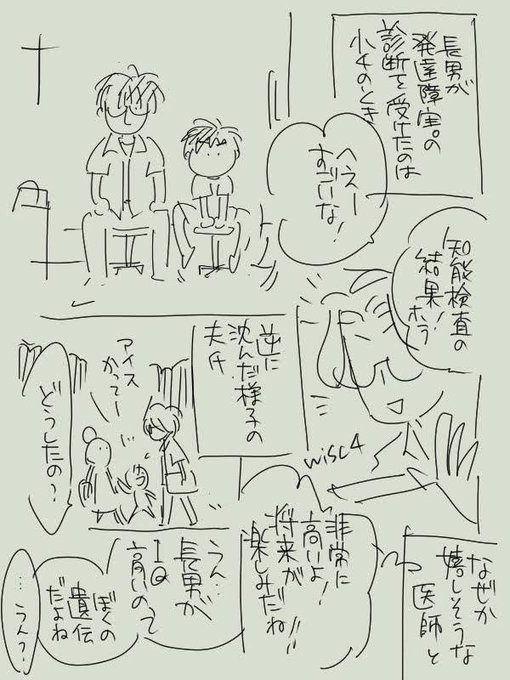 長男が
発達障害の
診断を受けたのは
小4のとき
へえー
すごいな!
知能検査の
結果!ホラ
wisc4
なぜか
嬉しそうな
医師と
非常に
高いよ!
将来が
楽しみだね!!
逆に
沈んだ様子の
夫氏
アイス
かってー
どうしたの?
うん…
長男が
IQ
高いのって
ぼくの
遺伝
だよね
…うん?